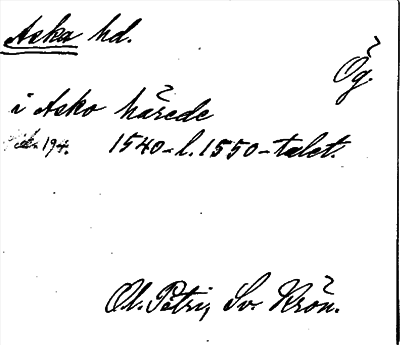 Aska hd.
Ög.
i Asko härede
194. 1540- l. 1550-talet.
Ol. Petri, Sv. Krön.